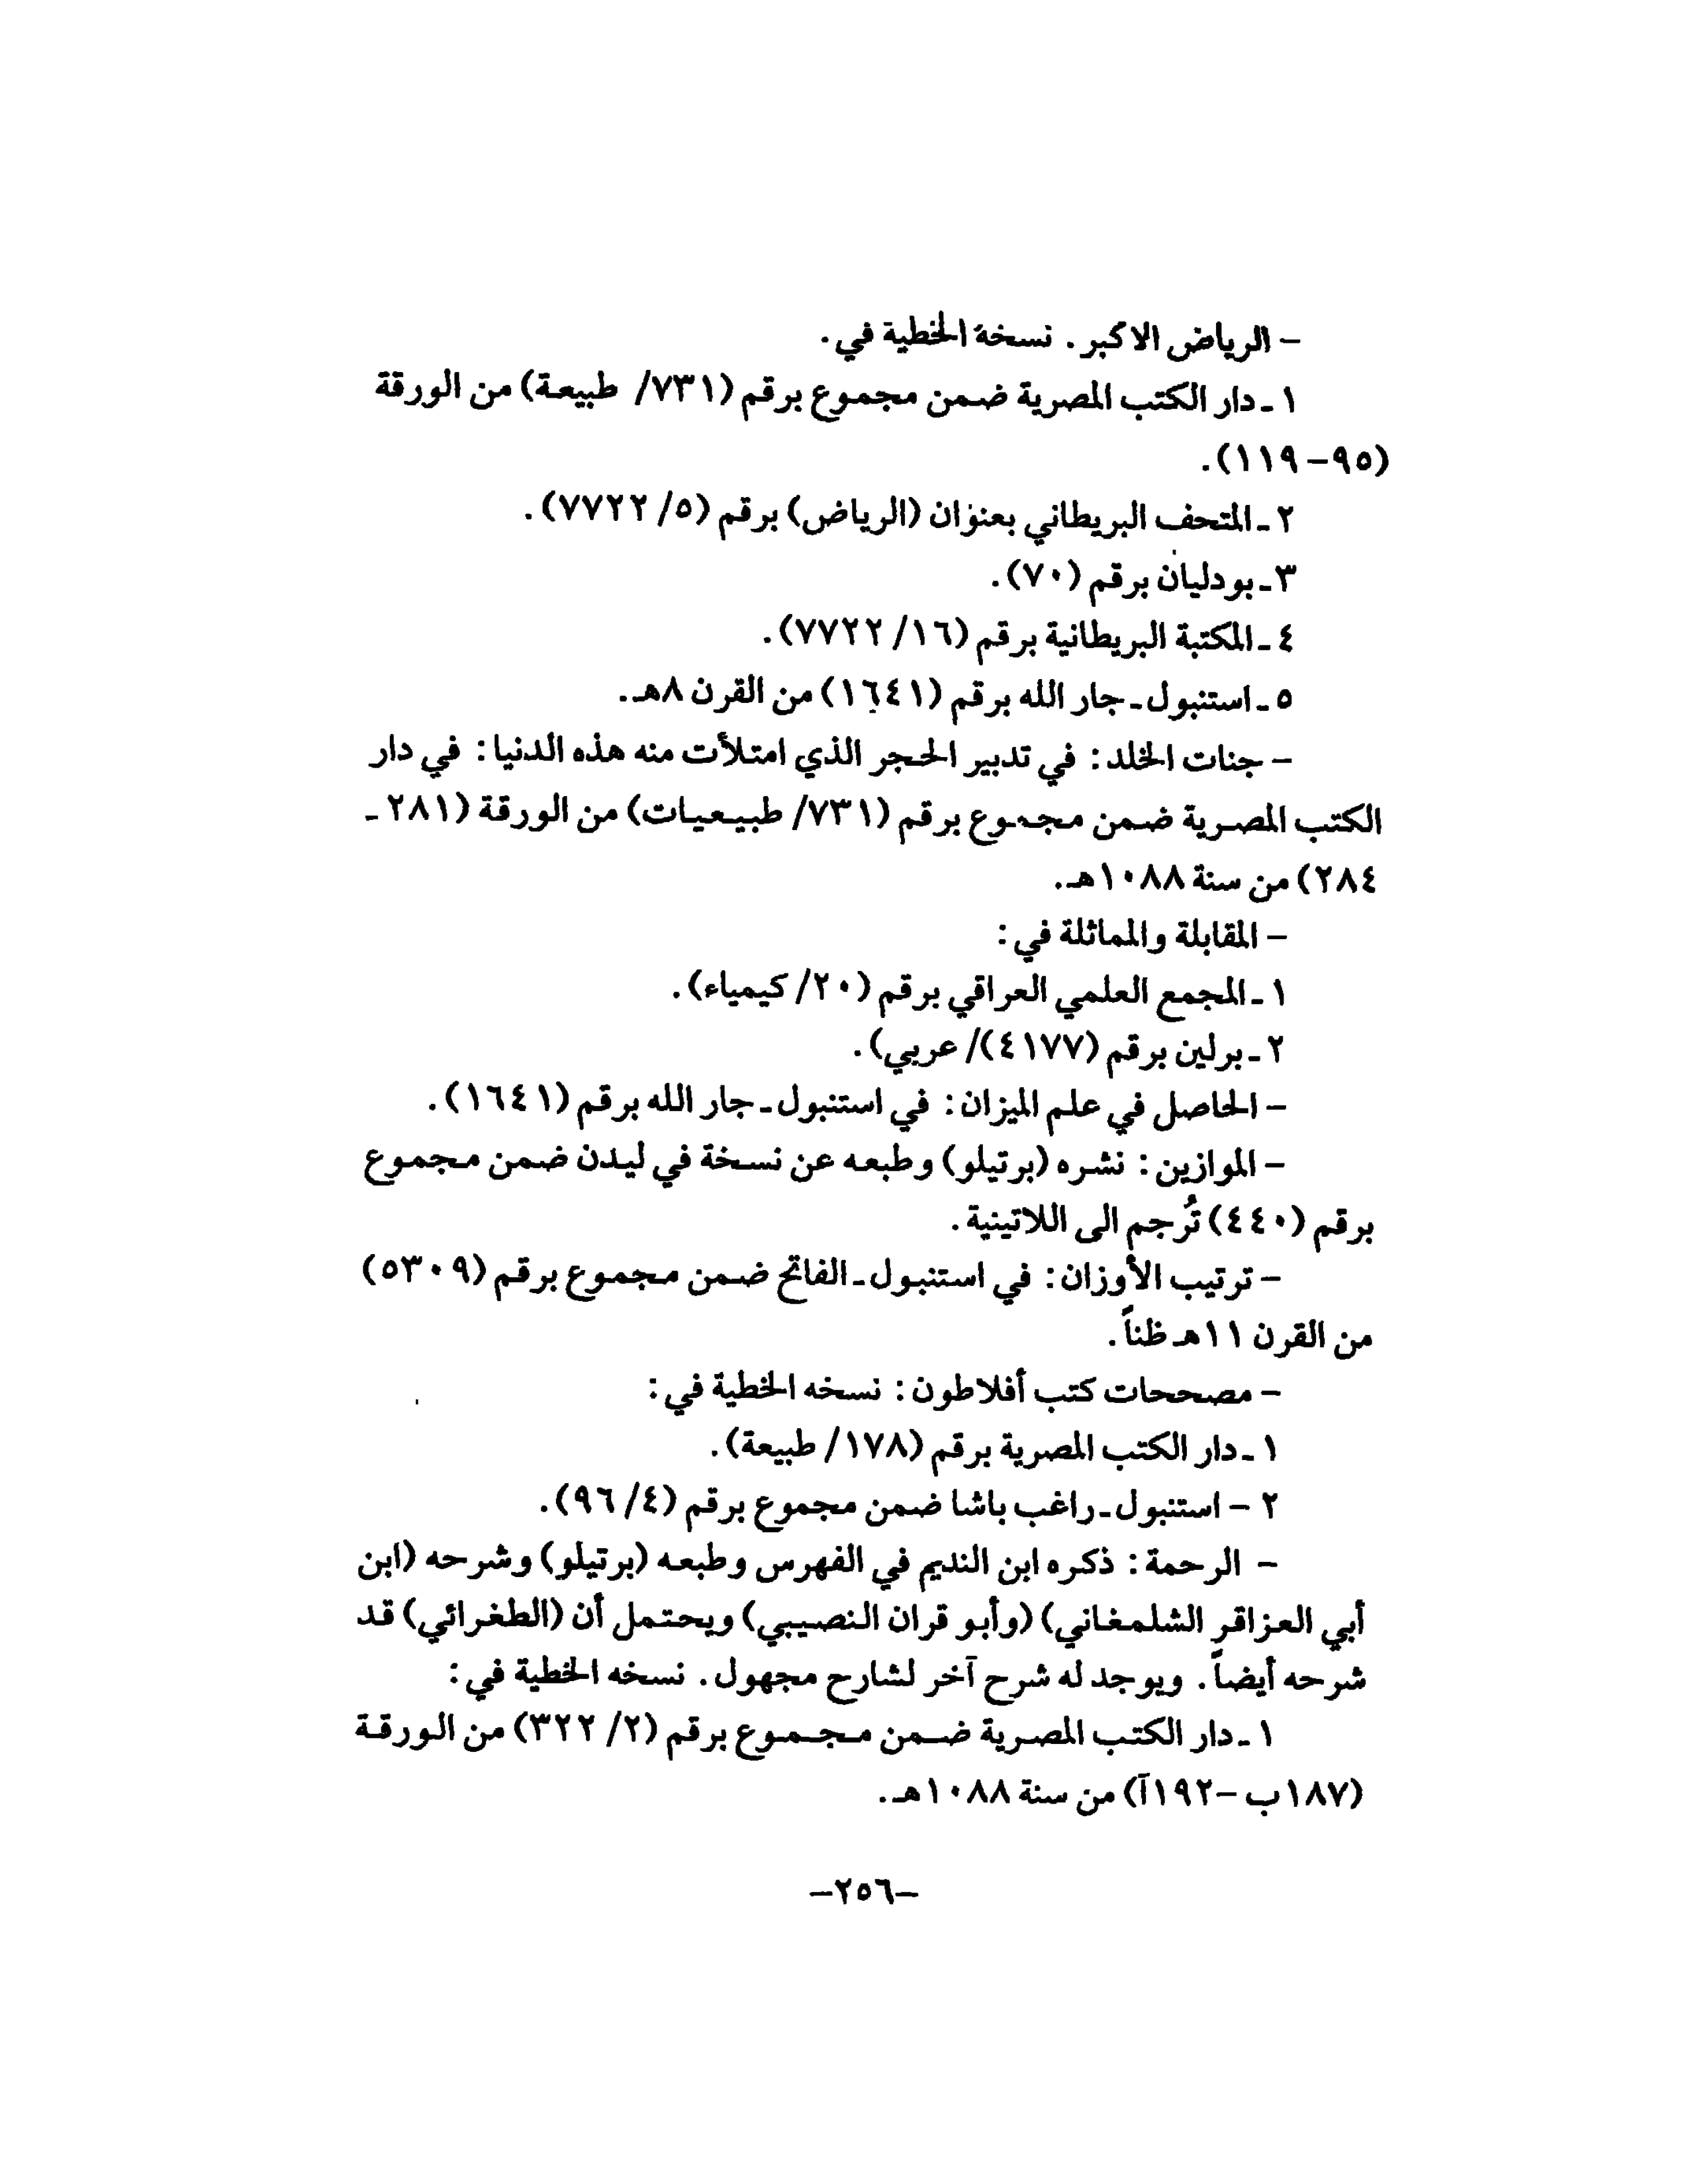 – الرياض الاكبر. نسخة الخطية في.
١ ـ دار الكتب المصرية ضمن مجموع برقم (٧٣١/ طبيعة) من الورقة
(٩٥–١١٩).
٢ ـ المتحف البريطاني بعنوان (الرياض) برقم (٥/ ٧٧٢٢).
٣ ـ بودليان برقم (٧٠).
٤ ـ المكتبة البريطانية برقم (١٦/ ٧٧٢٢).
٥ ـ استنبول ـ جار الله برقم (١٦٤١) من القرن ٨هـ.
– جنات الخلد: في تدبير الحجر الذي امتلأت منه هذه الدنيا: في دار
الكتب المصرية ضمن مجموع برقم (٧٣١/ طبيعيات) من الورقة (٢٨١ ـ
٢٨٤) من سنة ١٠٨٨هـ.
– المقابلة والمماثلة في:
١ ـ المجمع العلمي العراقي برقم (٢٠/ كيمياء).
٢ ـ برلين برقم (٤١٧٧)/ عربي).
– الحاصل في علم الميزان: في استنبول ـ جار الله برقم (١٦٤١).
– الموازين: نشره (برتيلو) وطبعه عن نسخة في ليدن ضمن مجموع
برقم (٤٤٠) تُرجم الى اللاتينية.
– ترتيب الأوزان: في استنبول ـ الفاتح ضمن مجموع برقم (٥٣٠٩)
من القرن ١١هـ ظناً.
– مصححات كتب أفلاطون: نسخه الخطية في:
١ ـ دار الكتب المصرية برقم (١٧٨/ طبيعة).
٢ – استنبول ـ راغب باشا ضمن مجموع برقم (٤/ ٩٦).
– الرحمة: ذكره ابن النديم في الفهرس وطبعه (برتيلو) وشرحه (ابن
أبي العزاقر الشلمغاني) (وأبو قران النصيبي) ويحتمل أن (الطغرائي) قد
شرحه أيضاً. ويوجد له شرح آخر لشارح مجهول. نسخه الخطية في:
١ ـ دار الكتب المصرية ضمن مجموع برقم (٢/ ٣٢٢) من الورقة
(١٨٧ب –١٩٢آ) من سنة ١٠٨٨هـ.
–٢٥٦–